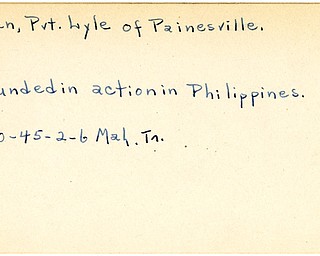 n, Pvt. Lyle of Painesville.
unded in action in Philippines.
0-45-2-6 Mah. Tr.